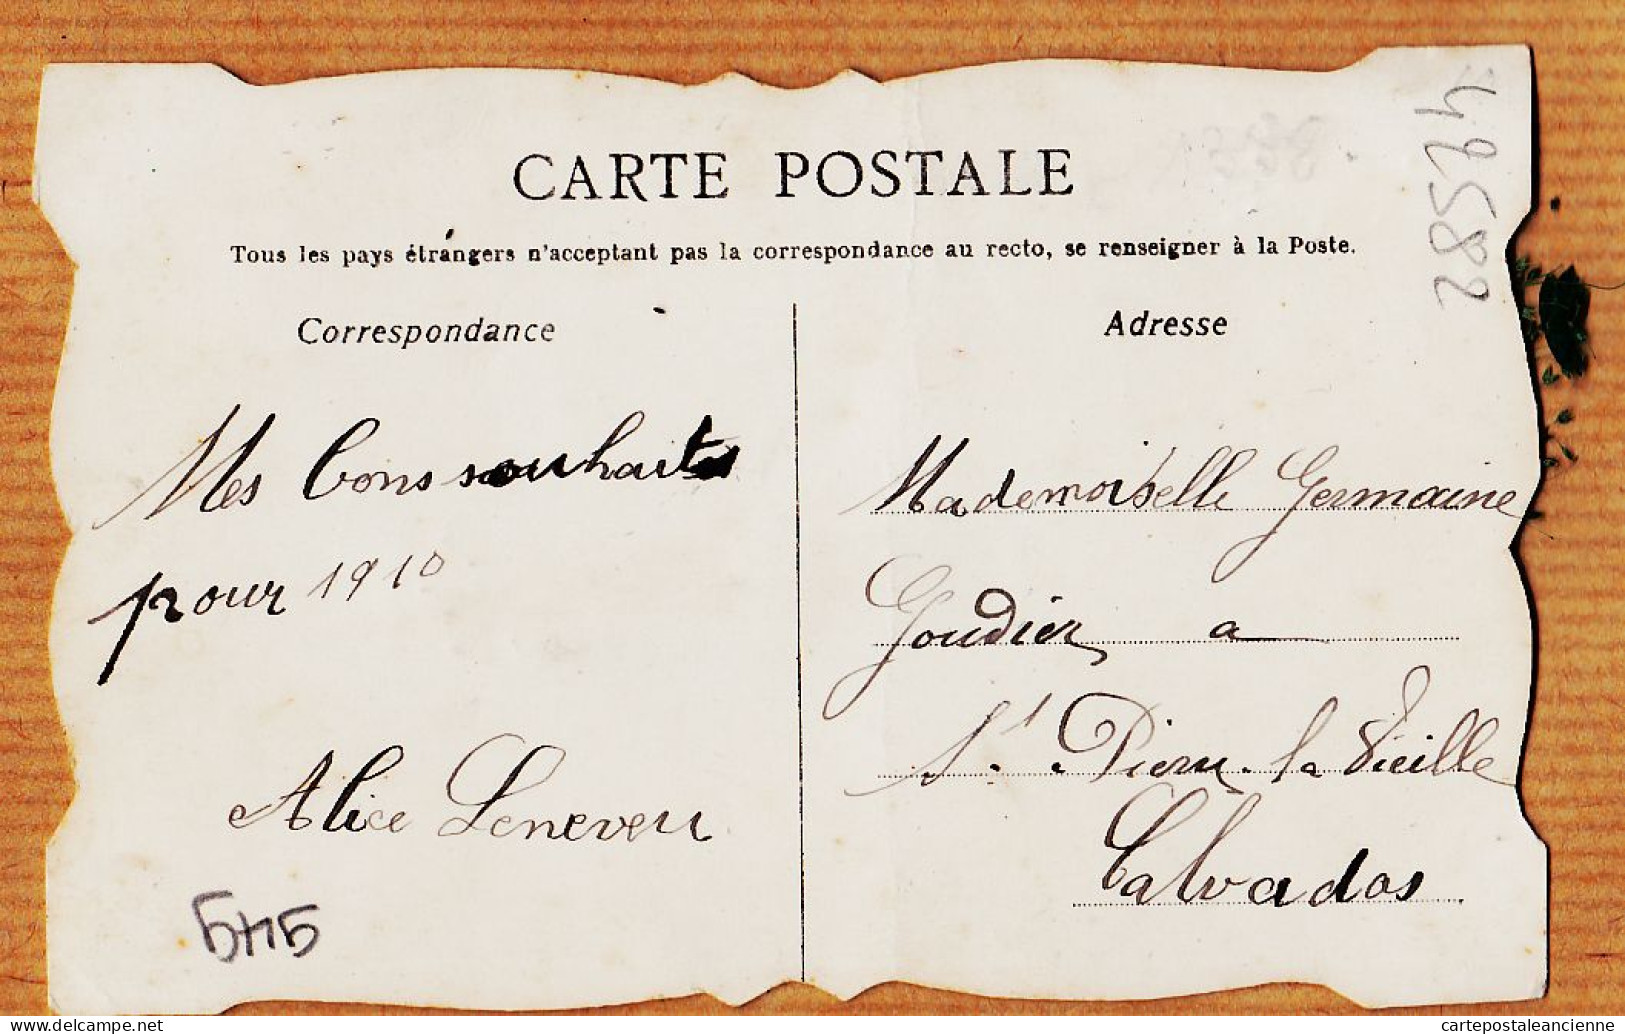 CARTE POSTALE
Tous les pays étrangers n'acceptant pas la correspondance au recto, se renseigner à la Poste.
Correspondance
Mes bons souhaits
pour 1910
Alice Leneveu
Adresse
Mademoiselle Germaine
Goudier a
St Pierre la Vieille
Calvados
delcampe.net
cartepostaleancienne
cartepostaleancienne.com